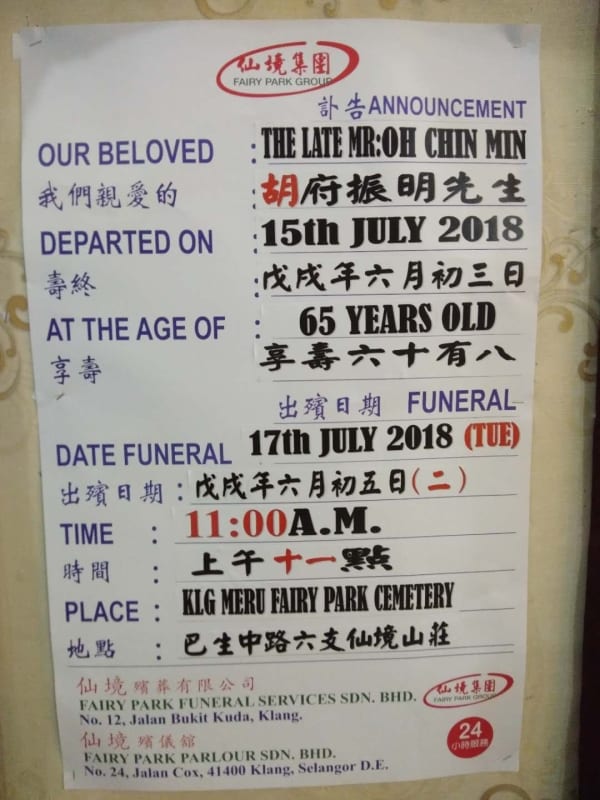 仙境集團
FAIRY PARK GROUP
訃告ANNOUNCEMENT
OUR BELOVED : THE LATE MR:OH CHIN MIN
我們親愛的 : 胡府振明先生
DEPARTED ON : 15th JULY 2018
壽終 : 戊戌年六月初三日
AT THE AGE OF : 65 YEARS OLD
享壽 享壽六十有八
出殯日期 FUNERAL
DATE FUNERAL 17th JULY 2018 (TUE)
出殯日期 : 戊戌年六月初五日(二)
TIME : 11:00A.M.
時間 : 上午十一點
PLACE : KLG MERU FAIRY PARK CEMETERY
地點 : 巴生中路六支仙境山莊
仙境殯葬有限公司
FAIRY PARK FUNERAL SERVICES SDN. BHD.
No. 12, Jalan Bukit Kuda, Klang.
仙境集團
FAIRY PARK GROUP
仙境殯儀舘
FAIRY PARK PARLOUR SDN. BHD.
No. 24, Jalan Cox, 41400 Klang, Selangor D.E.
24
小時服務